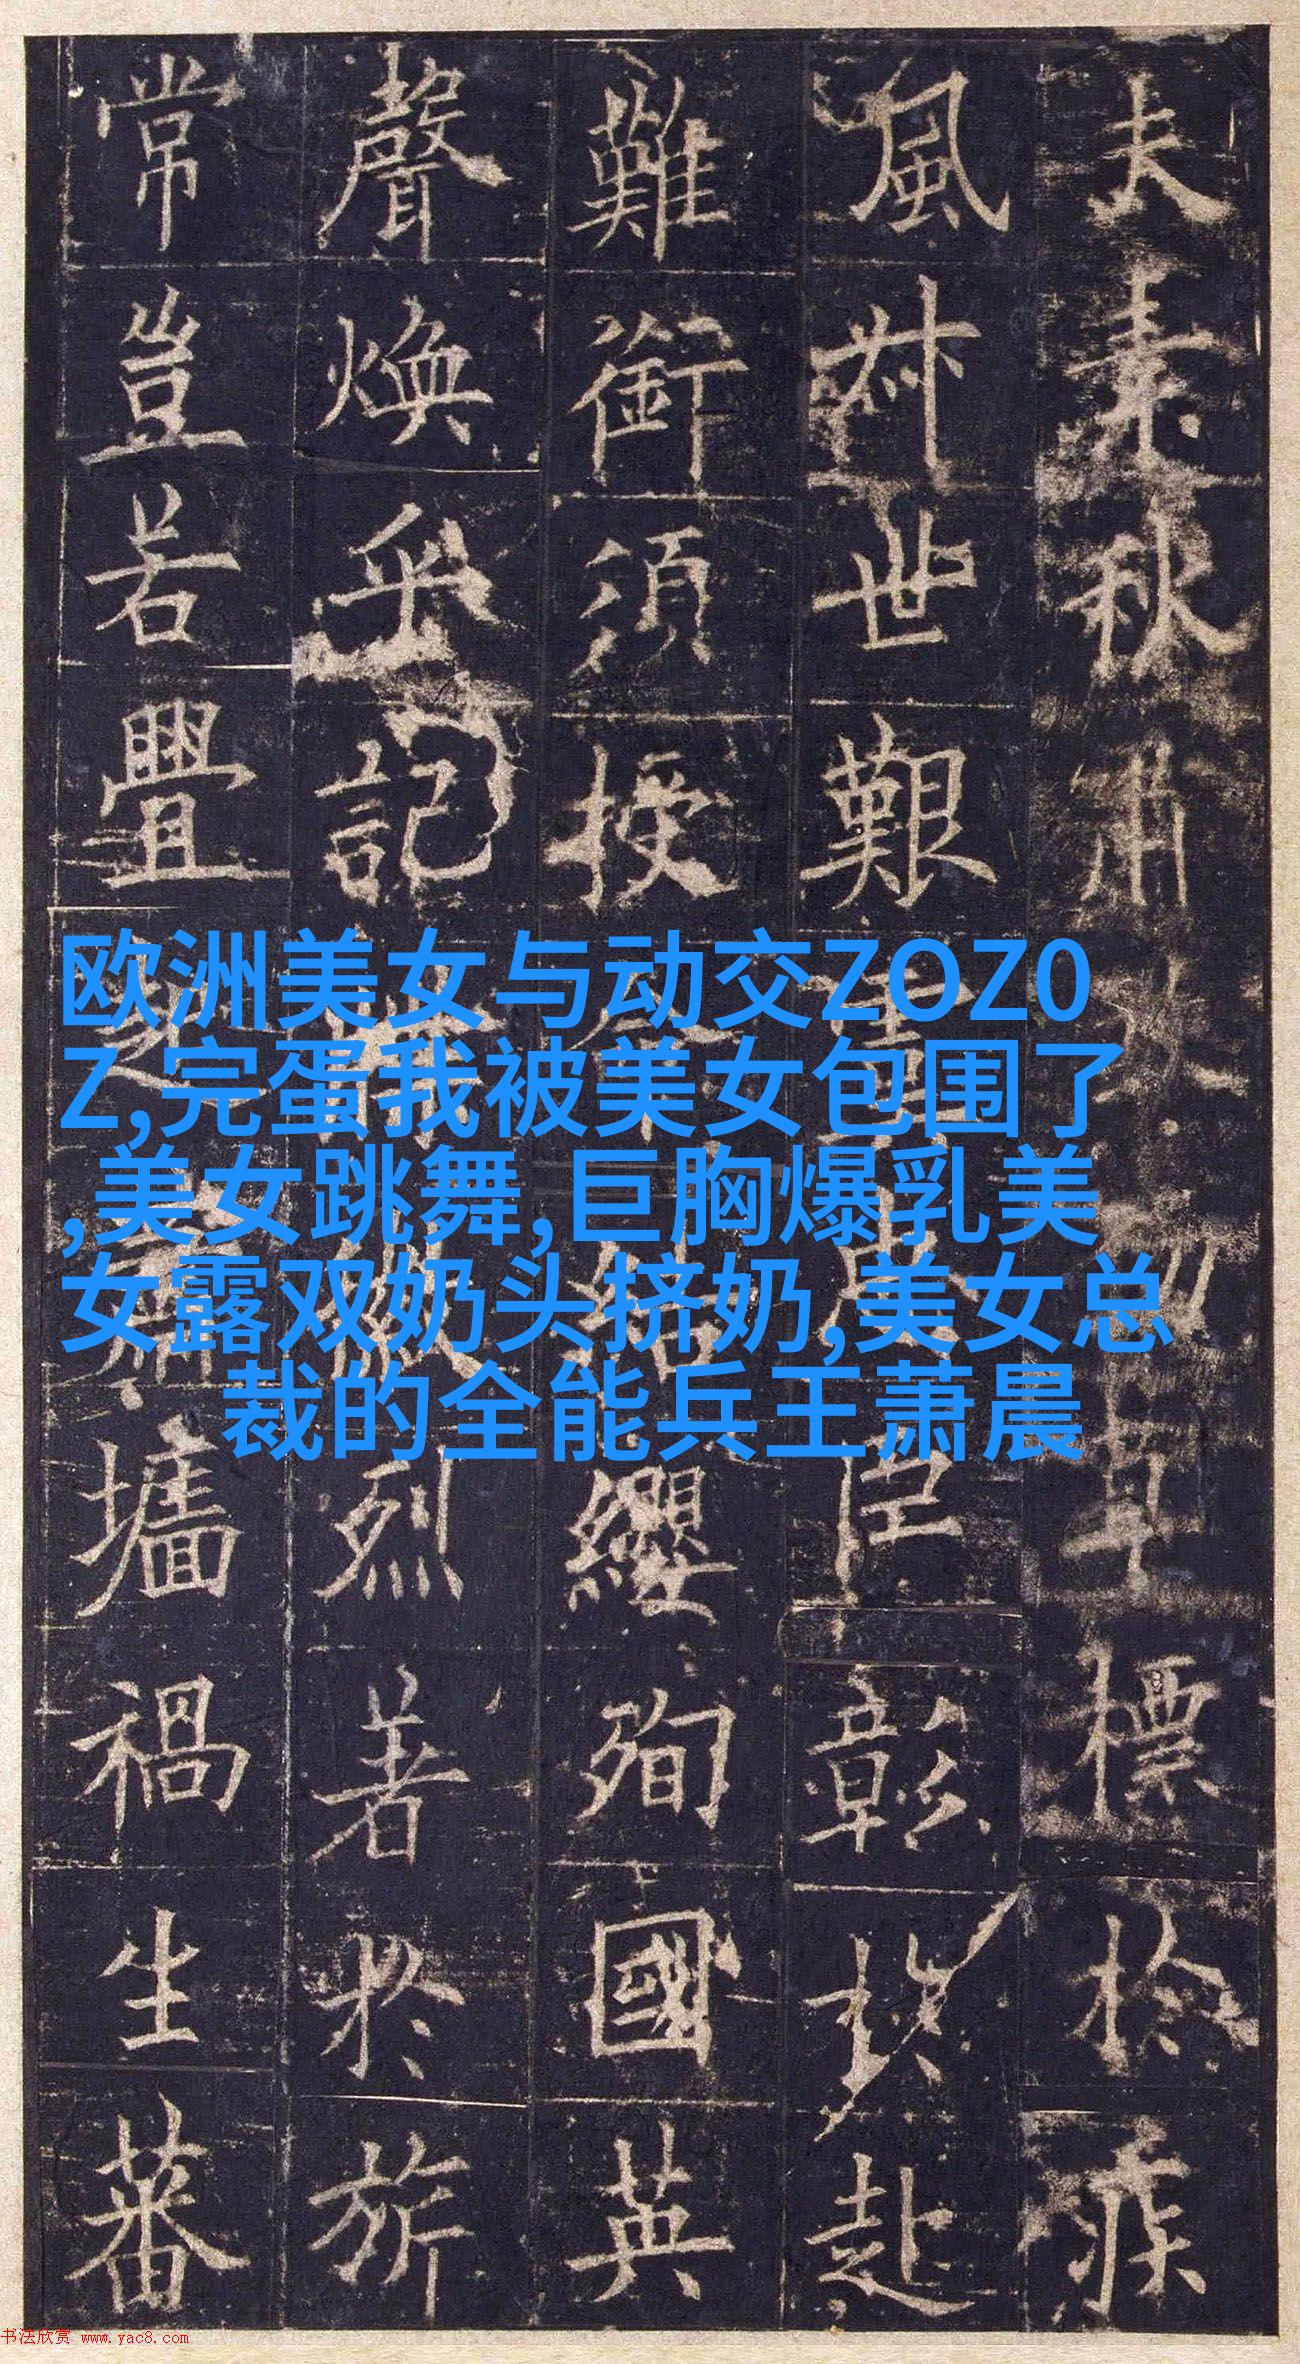 夫素秋肅勁草標於疾
風叔世艱臣彰於赴
難銜須授命結纓殉國英
聲煥乎記烈著於旂
常豈若釁起蕭墻禍生蕃
欧洲美女与动交ZOZ0
Z,完蛋我被美女包围了
,美女跳舞,巨胸爆乳美
女露双奶头挤奶,美女总
裁的全能兵王萧晨
书法欣赏 www.yac8.com